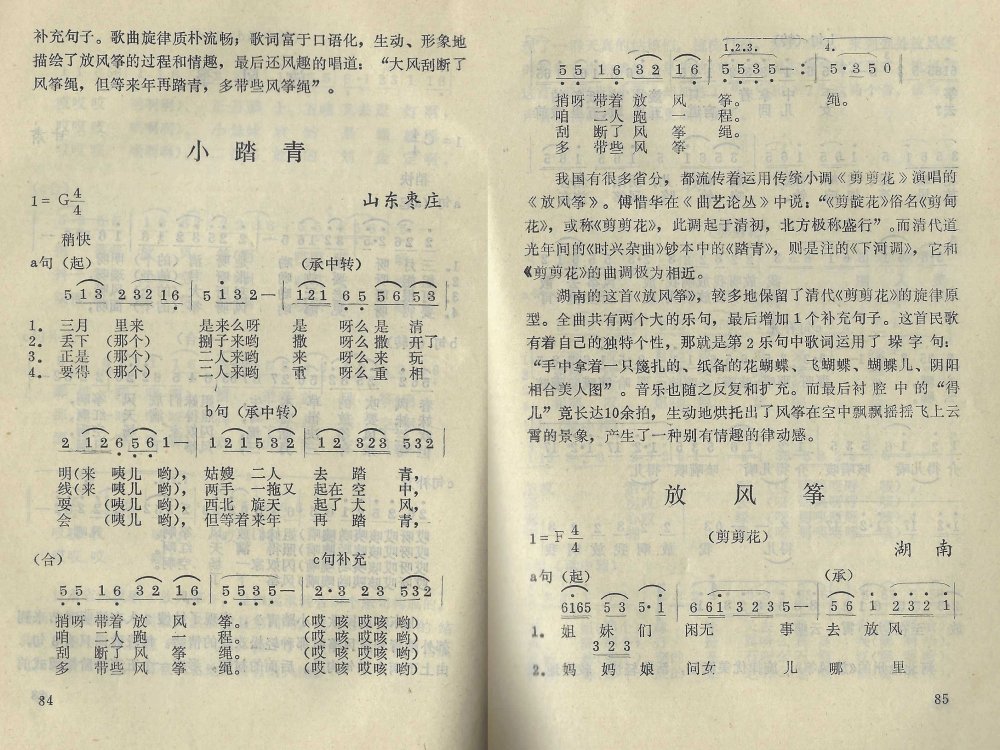 补充句子。歌曲旋律质朴流畅；歌词富于口语化，生动、形象地
描绘了放风筝的过程和情趣，最后还风趣的唱道：“大风刮断了
风筝绳，但等来年再踏青，多带些风筝绳”。
小踏青
1＝G 4/4
山东枣庄
稍快
a句（起） （承中转）
5 1 3 2 3 2 1 6 | 5 · 1 3 2 — | 1 2 1 6 · 5 5 6 5 3 |
1. 三月 里来 是来么呀 是 呀么是 清
2. 丢下（那个） 捌子来哟 撒 呀么撒 开了
3. 正是（那个） 二人来哟 来 呀么来 玩
4. 要得（那个） 二人来哟 重 呀么重 相
b句（承中转）
2 1 2 6 5 6 1 — | 1 2 1 5 3 2 | 1 2 3 2 3 5 3 2 |
明(来 咦儿 哟)， 姑嫂 二人 去 踏 青，
线(来 咦儿 哟)， 两手 一拖又 起在 空 中，
耍 (咦儿 哟)， 西北 旋天 起了 大 风，
会 (咦儿 哟)， 但等着来年 再 踏 青，
（合） c句补充
5 5 1 6 3 2 1 6 | 5 5 3 5 — | 2 · 3 2 3 5 3 2 |
捎呀 带着 放 风 筝。 (哎咳 哎咳 哟)
咱 二人 跑 一 程。 (哎咳 哎咳 哟)
刮 断了 风 筝 绳。 (哎咳 哎咳 哟)
多 带些 风 筝 绳。 (哎咳 哎咳 哟)
84
1.2.3. 4.
5 5 1 6 3 2 1 6 | 5 5 3 5 — : 5 · 3 5 0
捎呀 带着 放 风 筝。 绳。
咱 二人 跑 一 程。
刮 断了 风 筝 绳。
多 带些 风 筝 绳
我国有很多省分，都流传着运用传统小调《剪剪花》演唱的
《放风筝》。傅惜华在《曲艺论丛》中说：“《剪靛花》俗名《剪甸
花》，或称《剪剪花》，此调起于清初，北方极称盛行”。而清代道
光年间的《时兴杂曲》钞本中的《踏青》，则是注的《下河调》，它和
《剪剪花》的曲调极为相近。
湖南的这首《放风筝》，较多地保留了清代《剪剪花》的旋律原
型。全曲共有两个大的乐句，最后增加1个补充句子。这首民歌
有着自己的独特个性，那就是第2乐句中歌词运用了垛字句：
“手中拿着一只篾扎的、纸备的花蝴蝶、飞蝴蝶、蝴蝶儿、阴阳
相合美人图”。音乐也随之反复和扩充。而最后衬腔中的“得
儿”竟长达10余拍，生动地烘托出了风筝在空中飘飘摇摇飞上云
霄的景象，产生了一种别有情趣的律动感。
放风筝
1＝F 4/4
（剪剪花）
湖南
a句（起） （承）
6165 5 3 5 · 1 | 6 6 1 3 2 3 5 — | 5 6 1 2 3 2 1 |
1. 姐 妹 们 闲无 事 去 放 风
3 2 3
2. 妈 妈 娘 问女 儿 哪 里
85